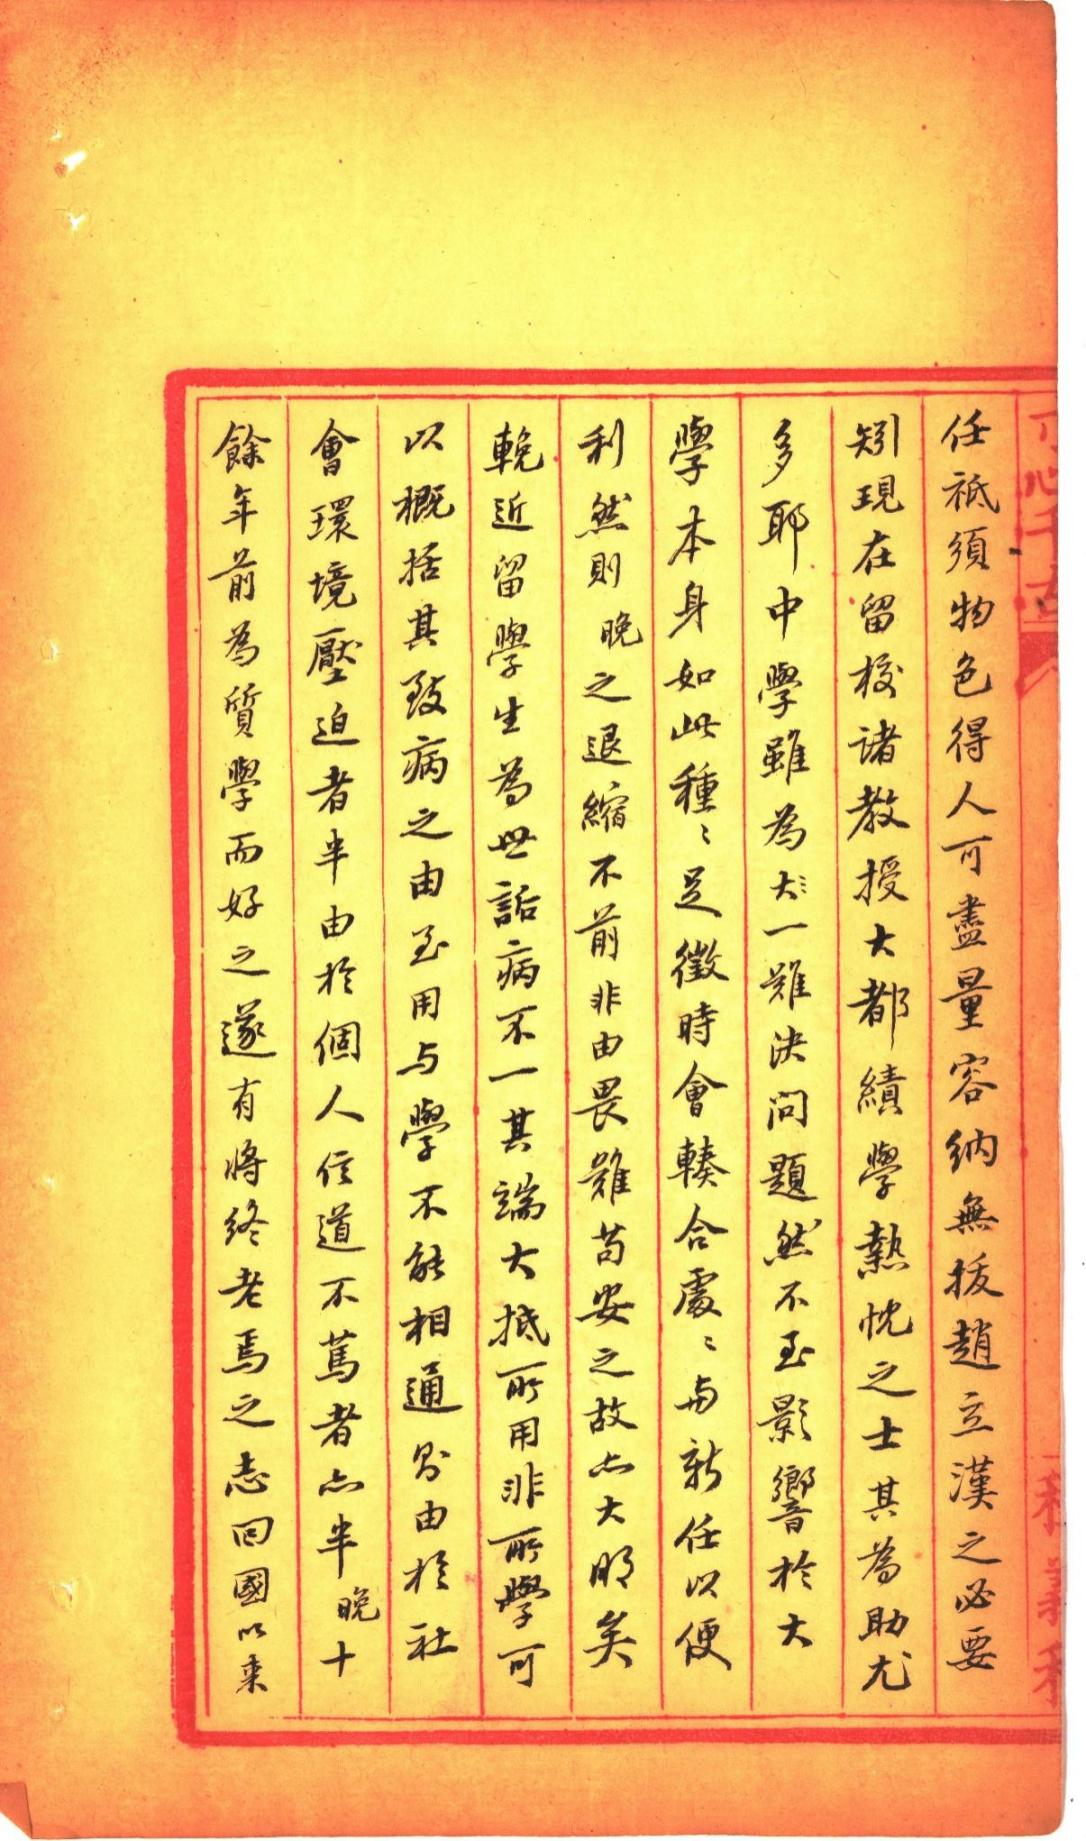 任祇須物色得人可盡量容納無拔趙立漢之必要
矧現在留校諸教授大都績學熱忱之士其為助尤
多耶中學雖為大〻一難決問題然不至影響於大
學本身如此種〻足徵時會輳合處〻與新任以便
利然則晚之退縮不前非由畏難苟安之故亦大明矣
輓近留學生為世詬病不一其端大抵所用非所學可
以概括其致病之由至用与學不能相通則由於社
會環境壓迫者半由於個人信道不篤者亦半晚十
餘年前為質學而好之遂有將終老焉之志回國以來